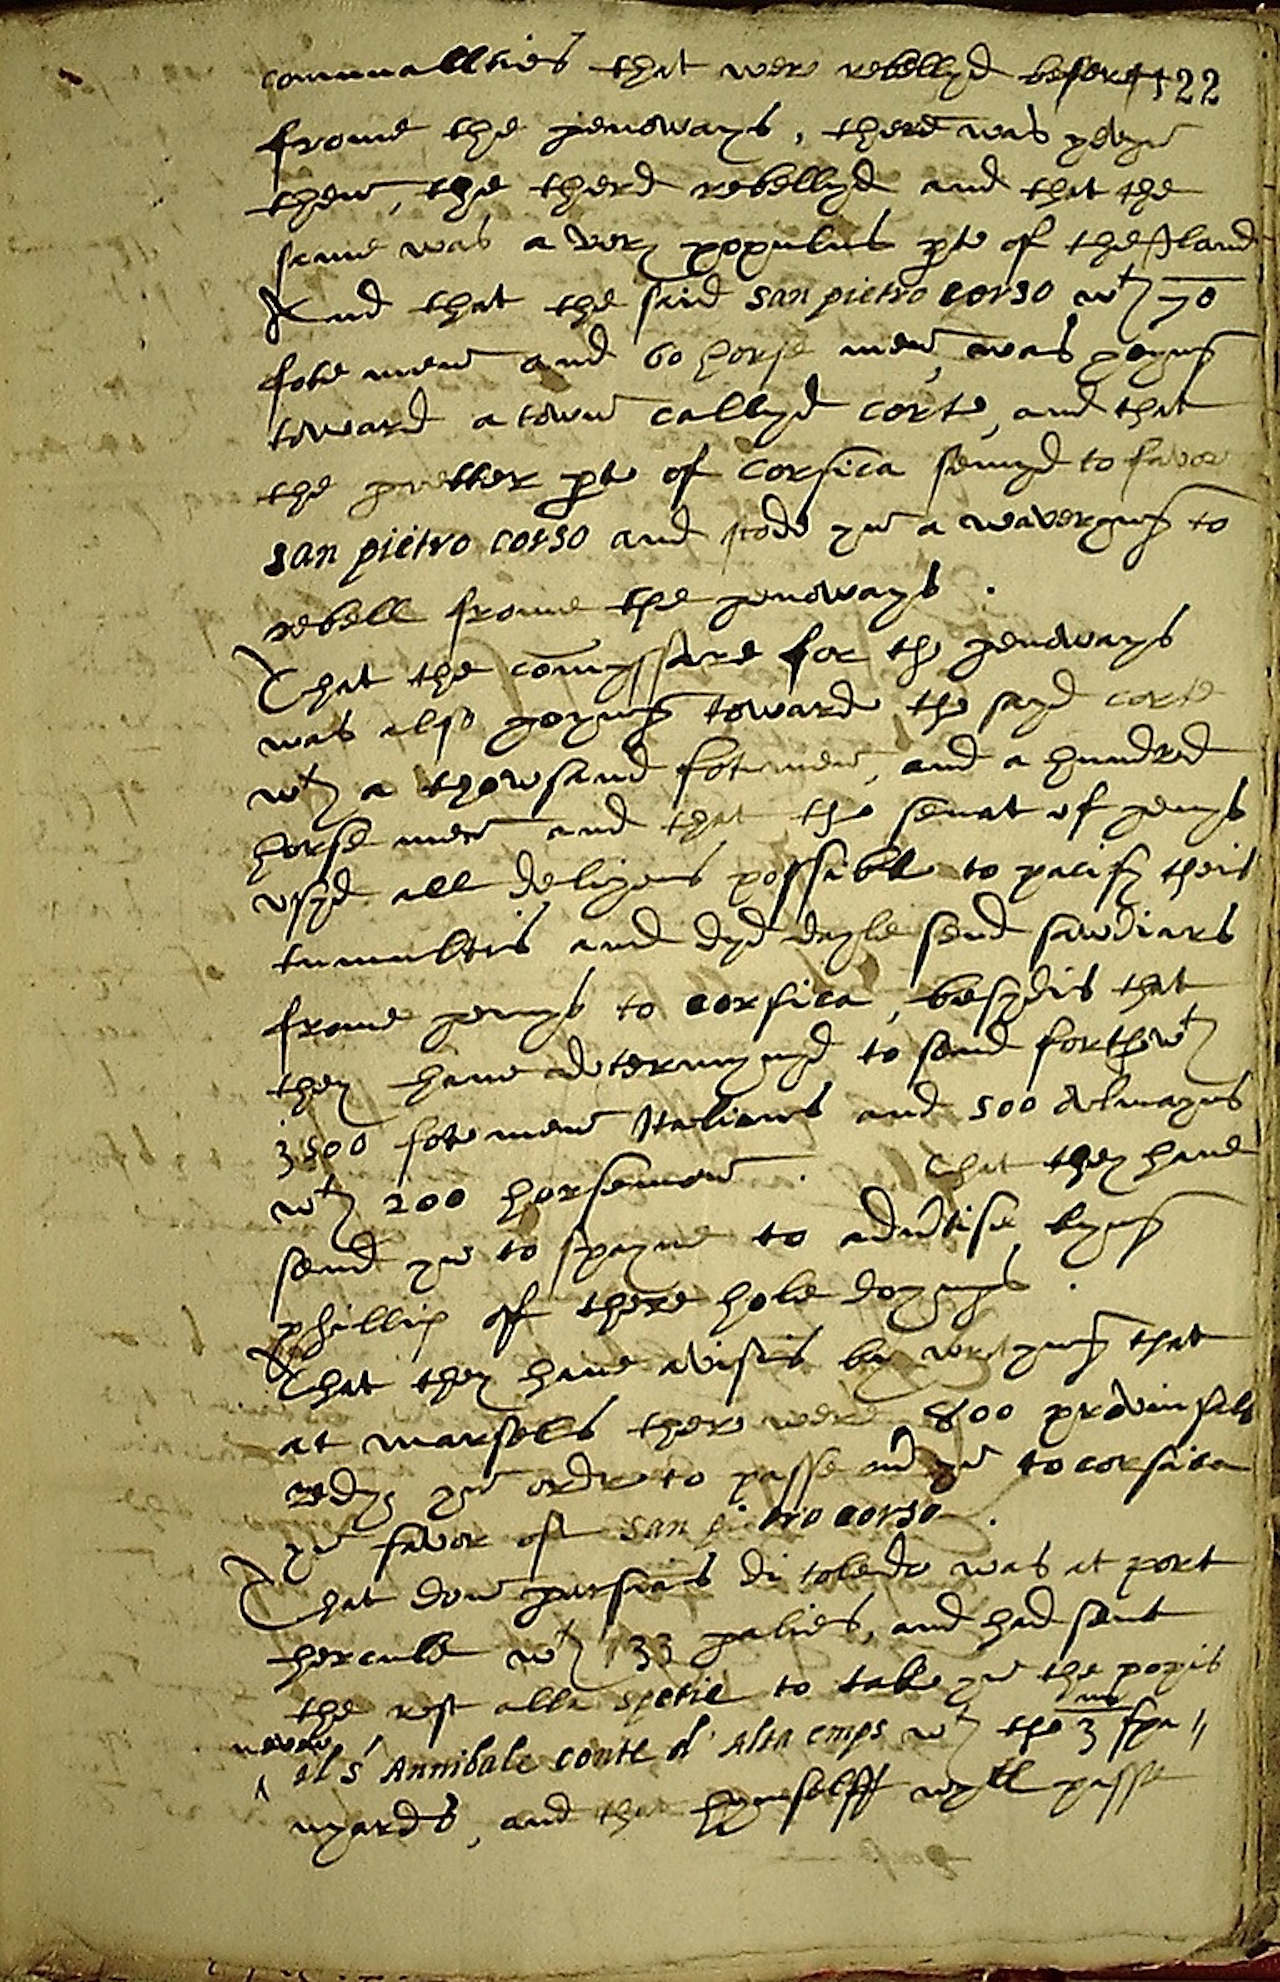 comunallties that were rebellyd before 122
frome the genoways, there was
them, the therd rebellyd and that the
same was a very populus pte of the Iland
And that the said san pietro corso wth 70
fote men and 60 horse men, was goyng
toward a town callyd corte, and that
the gretter pte of Corsica semyd to favor
san pietro corso and stode yn a waveryng to
rebell frome the genoways.
That the comyssare for the genoways
was also goyng toward the sayd corte
wth a thowsand fotemen, and a hundred
horse men and that the senat of
usyd all deligens possible to pacify theis
tumultis and dyd dayle send sawdiars
frome to corsica, besydis that
they have determynyd to send forthwth
3500 fote men Italians and 500 Almayns
wth 200 horsemen. That they have
send yn to spayne to advtise kyng
phillip off there hole doyngs.
That they have avisis by wrytyng that
at marsells there were 800 provinsals
redy yn ordre to passe to corsica
yn favor off san pietro corso.
That don garsias di toledo was at port
hercule wth 33 galies, and had sent
the rest alla spetie to take yn the popis
nevew
il s Annibale conte d' Alta emps wth the 3 m spa //
nyards, and that hymselff wyll passe